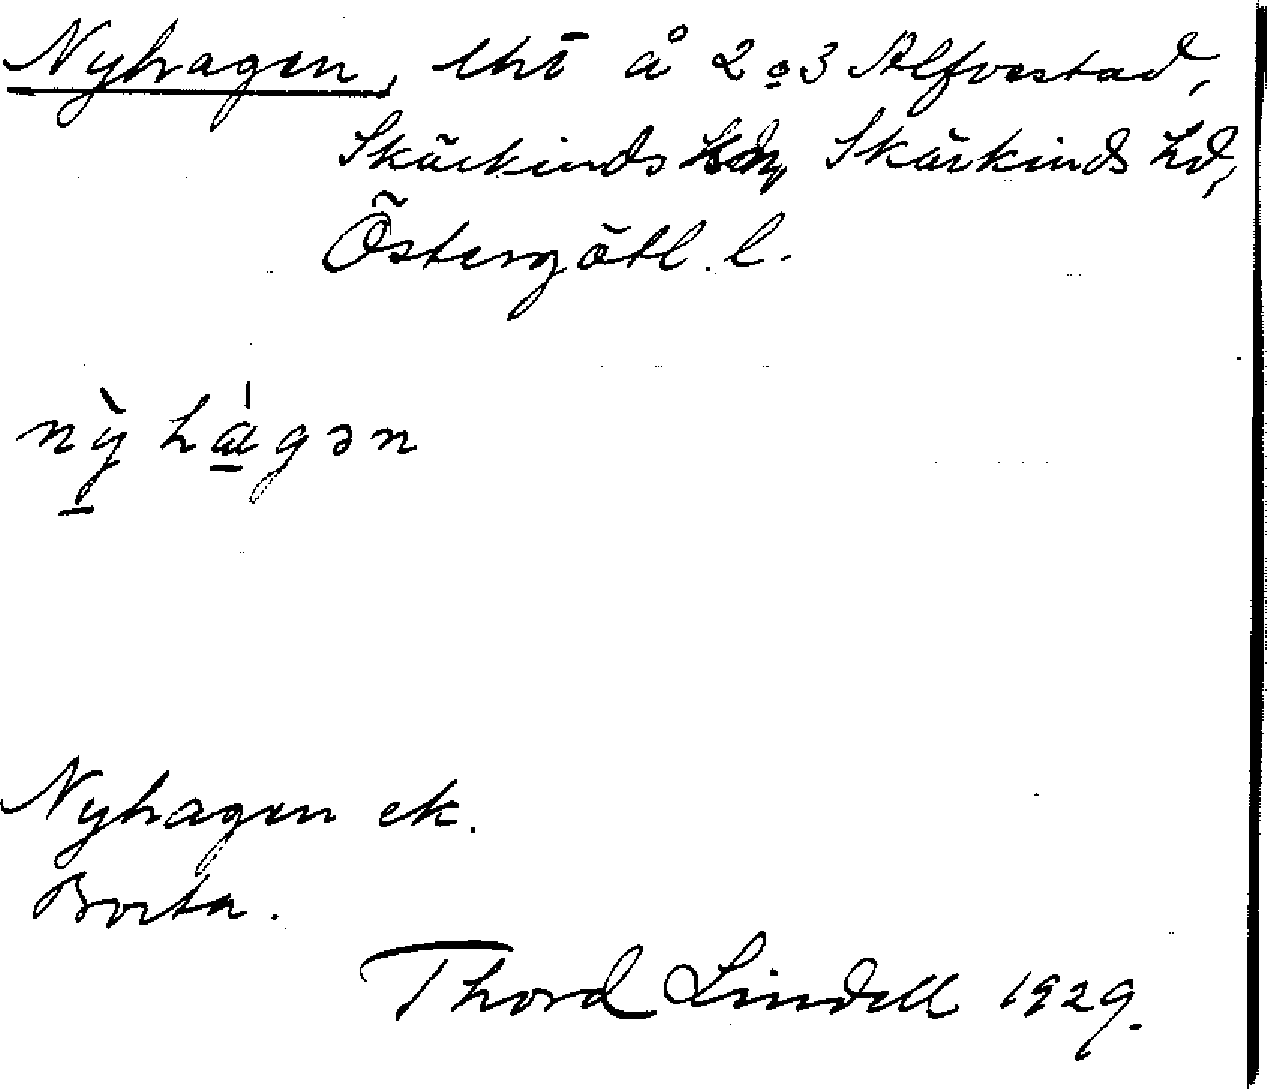 Nyhagen, lht å 2 o 3 Alfvestad,
Skärkinds sn, Skärkinds hd,
Östergötl. l.
nỳ hágən
Nyhagen ek.
Borta.
Thord Lindell 1929.